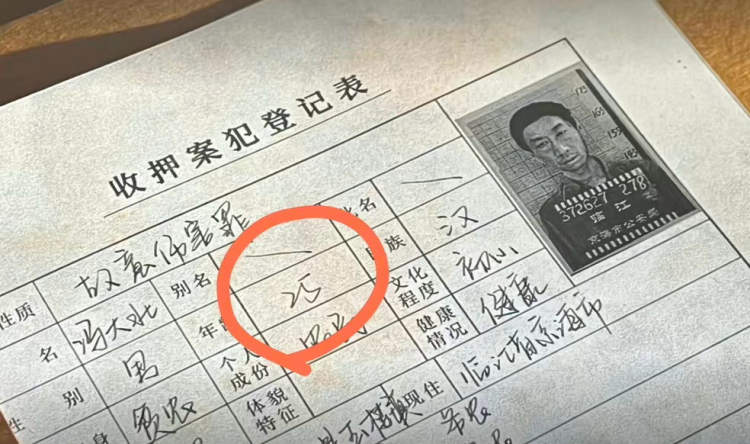 收押案犯登记表
性质 故意伤害罪 化名 —
名 冯大壮 别名 — 民族 汉
性 别 男 年龄 25 文化程度 初小
身 贫农 个人成份 农民 健康情况 健康
体貌特征 现住 临江省京海市
372627 278
临 江
京海市公安局